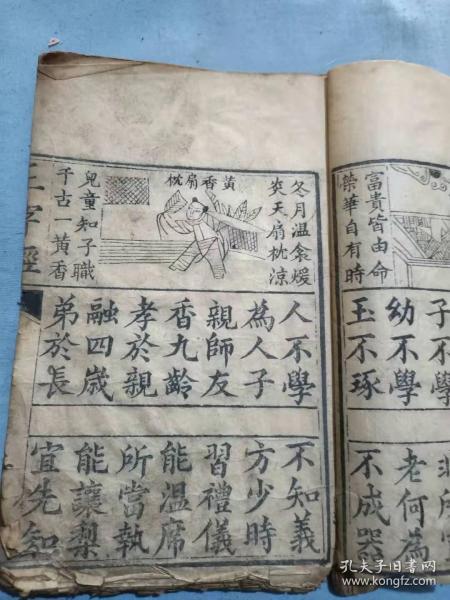 富貴皆由命
榮華自有時
子不學
幼不學
老何為
玉不琢
不成器
冬月温衾煖
炎天扇枕涼
黃香扇枕
兒童知子職
千古一黃香
人不學
不知義
為人子
方少時
親師友
習禮儀
香九齡
能温席
孝於親
所當執
融四歲
能讓梨
弟於長
宜先知
三字經
孔夫子旧书网
www.kongfz.com